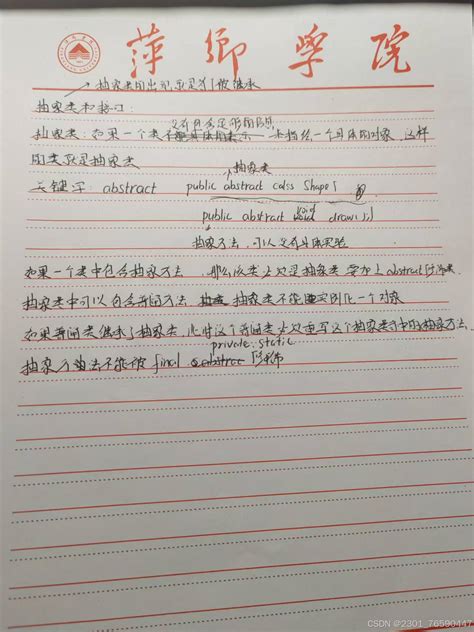 萍乡学院
抽象类的出现就是为了被继承
抽象类和接口:
没有包含足够的信息
抽象类:如果一个类 来描绘一个具体的对象,这样
的类就是抽象类
抽象类
关键字: abstract public abstract calss Shape {
public abstract void draw();}
抽象方法,可以没有具体实现
如果一个类中包含抽象方法,那么该类必须是抽象类 要加上abstract修饰类
抽象类中可以包含普通方法,抽象类不能实例化一个对象
如果普通类继承了抽象类,此时这个普通类必须重写这个抽象类中的抽象方法
private static
抽象方法不能被 final 修饰
CSDN @2301_76590447